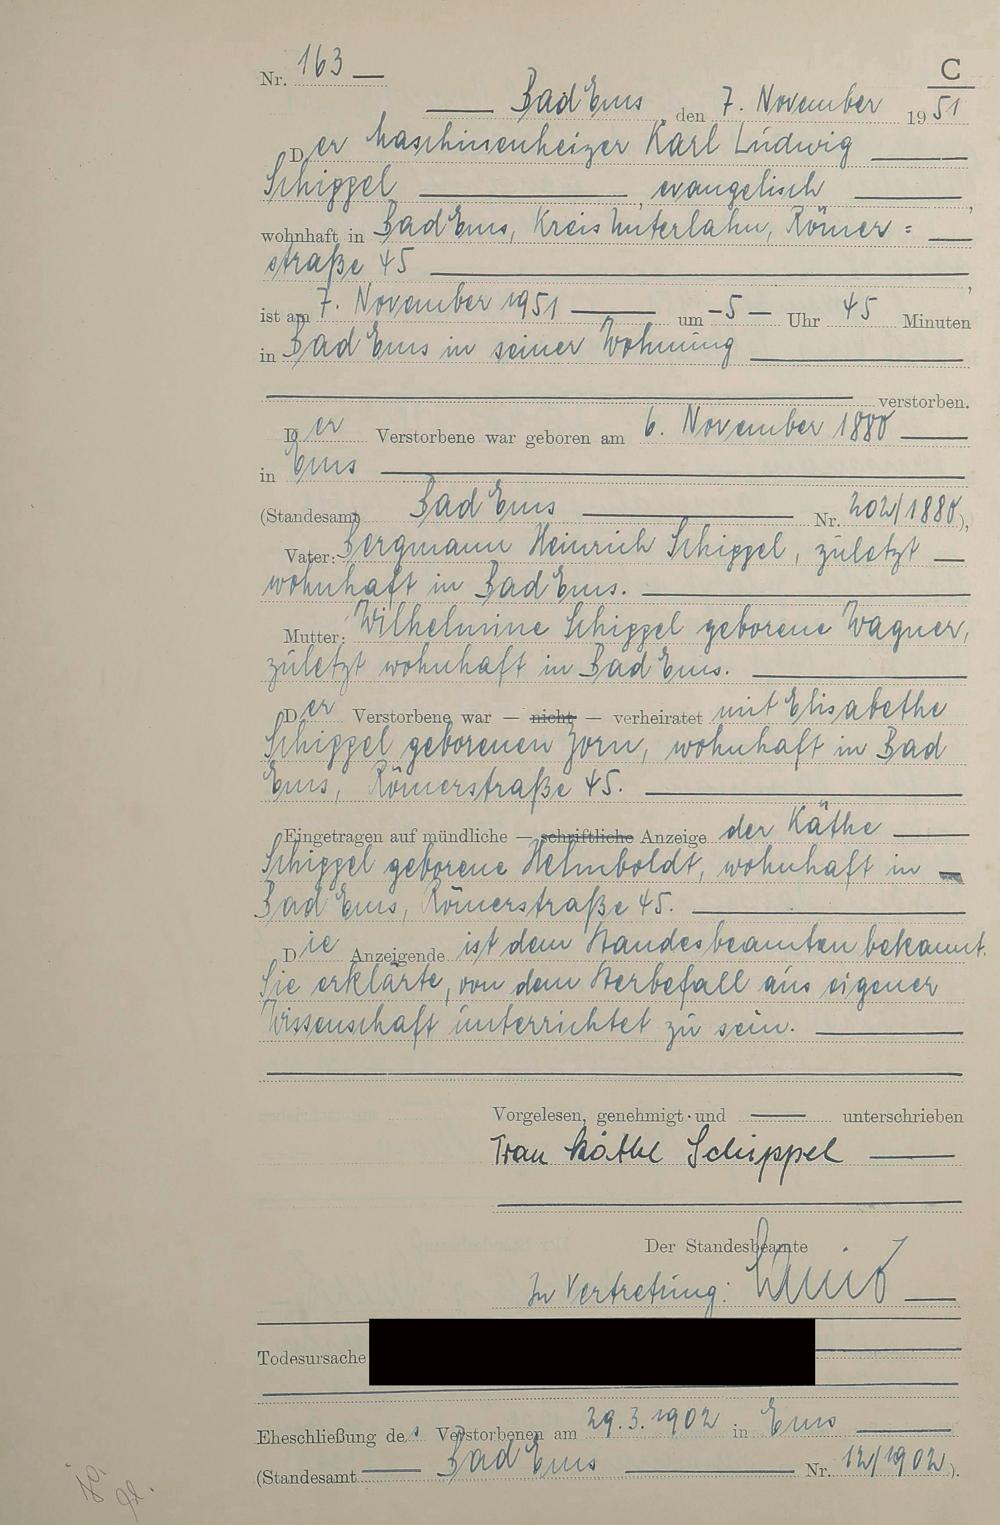 C
Nr. 163
Bad Ems, den 7. November 1951
Der Maschinenheizer Karl Ludwig
Schippel, evangelisch,
wohnhaft in Bad Ems, Kreis Unterlahn, Römer=
straße 45,
ist am 7. November 1951 um 5 Uhr 45 Minuten
in Bad Ems in seiner Wohnung
verstorben.
Der Verstorbene war geboren am 6. November 1880
in Ems
(Standesamt Bad Ems Nr. 202/1880),
Vater: Bergmann Heinrich Schippel, zuletzt
wohnhaft in Bad Ems.
Mutter: Wilhelmine Schippel geborene Wagner,
zuletzt wohnhaft in Bad Ems.
Der Verstorbene war — nicht — verheiratet mit Elisabethe
Schippel geborenen Zorn, wohnhaft in Bad
Ems, Römerstraße 45.
Eingetragen auf mündliche — schriftliche Anzeige der Käthe
Schippel geborene Helmboldt, wohnhaft in
Bad Ems, Römerstraße 45.
Die Anzeigende ist dem Standesbeamten bekannt.
Sie erklärte, von dem Sterbefall aus eigener
Wissenschaft unterrichtet zu sein.
Vorgelesen, genehmigt und unterschrieben
Frau Käthe Schippel
Der Standesbeamte
In Vertretung:
Todesursache
Eheschließung des Verstorbenen am 29.3.1902 in Ems
(Standesamt Bad Ems Nr. 12/1902).